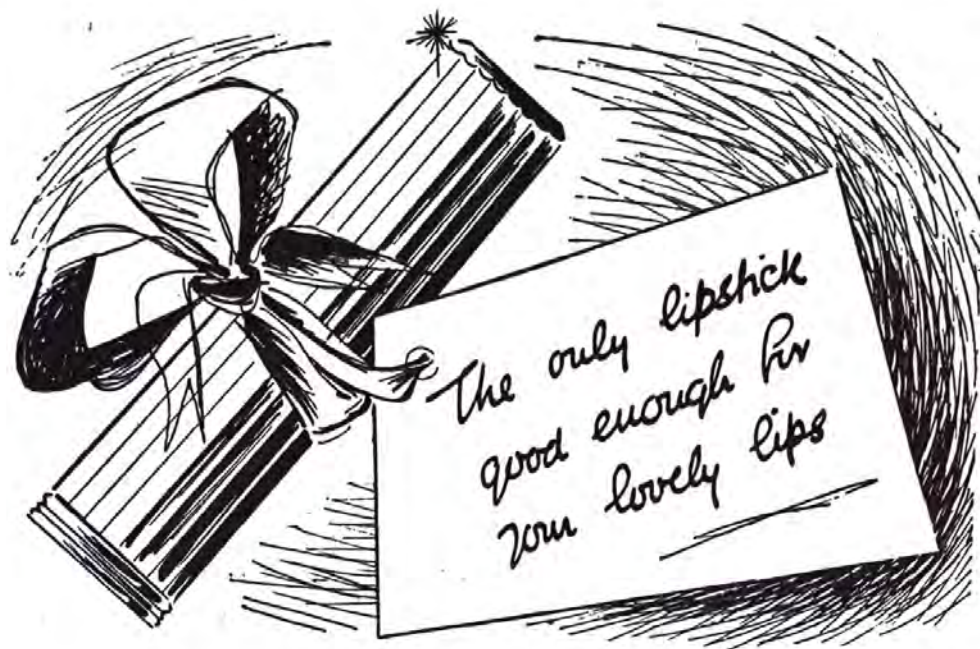 The only lipstick
good enough for
your lovely lips